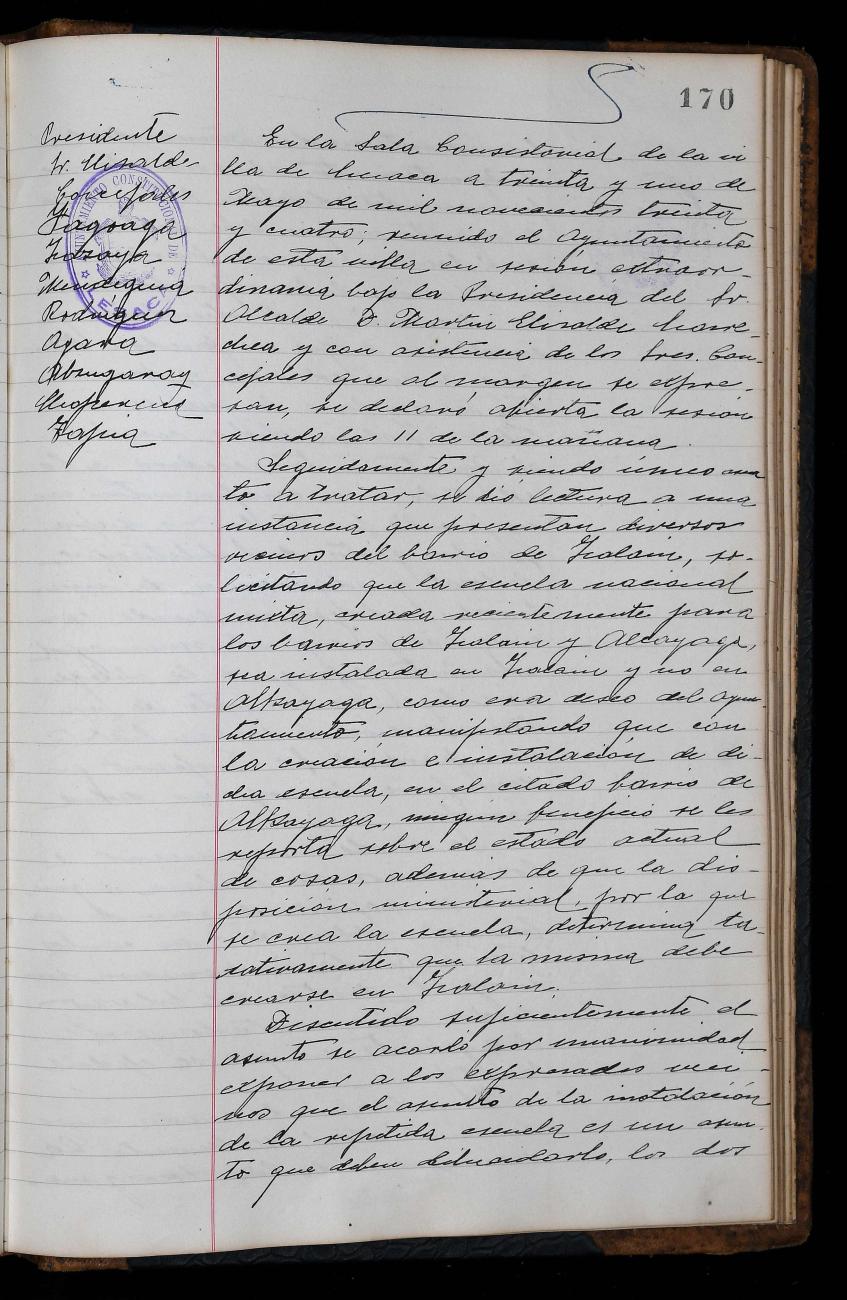 170
Presidente
Sr. Elisalde
Concejales
Fagoaga
Indaya
Mendiguia
Rodriguez
Agara
Obengaray
Tapia
AYUNTAMIENTO CONSTITUCIONAL DE
LESACA
En la Sala Consistorial de la vi
lla de Lesaca a treinta y uno de
Mayo de mil novecientos treinta
y cuatro; reunido el Ayuntamiento
de esta villa en sesión extraor-
dinaria bajo la Presidencia del Sr.
Alcalde D. Martin Elisalde Marre-
chea y con asistencia de los Sres. Con-
cejales que al margen se expre-
san, se declaró abierta la sesión
siendo las 11 de la mañana.
Seguidamente y siendo único asun
to a tratar, se dió lectura a una
instancia que presentan diversos
vecinos del barrio de Zalain, so-
licitando que la escuela nacional
mixta, creada recientemente para
los barrios de Zalain y Alcayaga,
sea instalada en Zalain y no en
Alkayaga, como era deseo del Ayun-
tamiento, manifestando que con
la creación e instalación de di-
cha escuela, en el citado barrio de
Alkayaga, ningún beneficio se les
reporta sobre el estado actual
de cosas, además de que la dis-
posición ministerial, por la que
se crea la escuela, determina ta-
sativamente que la misma debe
crearse en Zalain.
Discutido suficientemente el
asunto se acordó por unanimidad
exponer a los expresados veci-
nos que el asunto de la instalación
de la repetida escuela es un asun-
to que deben dilucidarlo, los dos